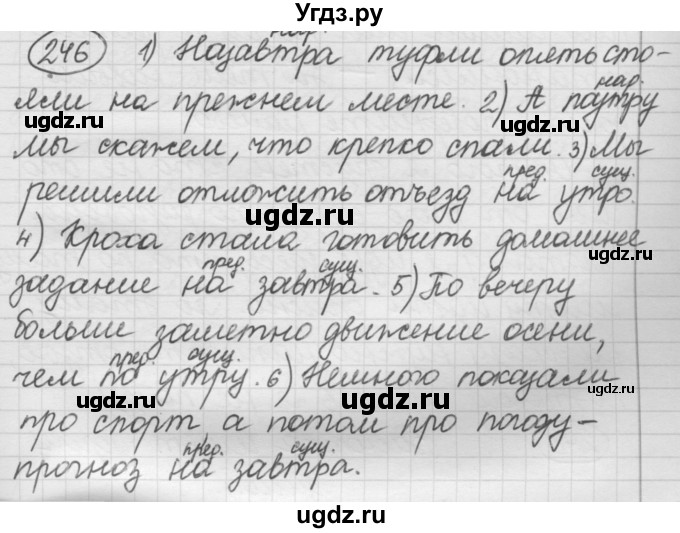 Угдз.ру
нар.
246 1) Назавтра туфли опять сто-
нар.
яли на прежнем месте. 2) А поутру
gdz.ru
gdz.ru
мы скажем, что крепко спали. 3) Мы
пред. сущ.
решили отложить отъезд на утро.
gdz.ru
4) Кроха стала готовить домашнее
пред. сущ.
задание на завтра. 5) По вечеру
больше заметно движение осени,
пред. сущ.
чем по утру. 6) Немного показали
gdz.ru
gdz.ru
gdz.ru
про спорт а потом про погоду-
пред. сущ.
прогноз на завтра.
gdz.ru
gdz.ru